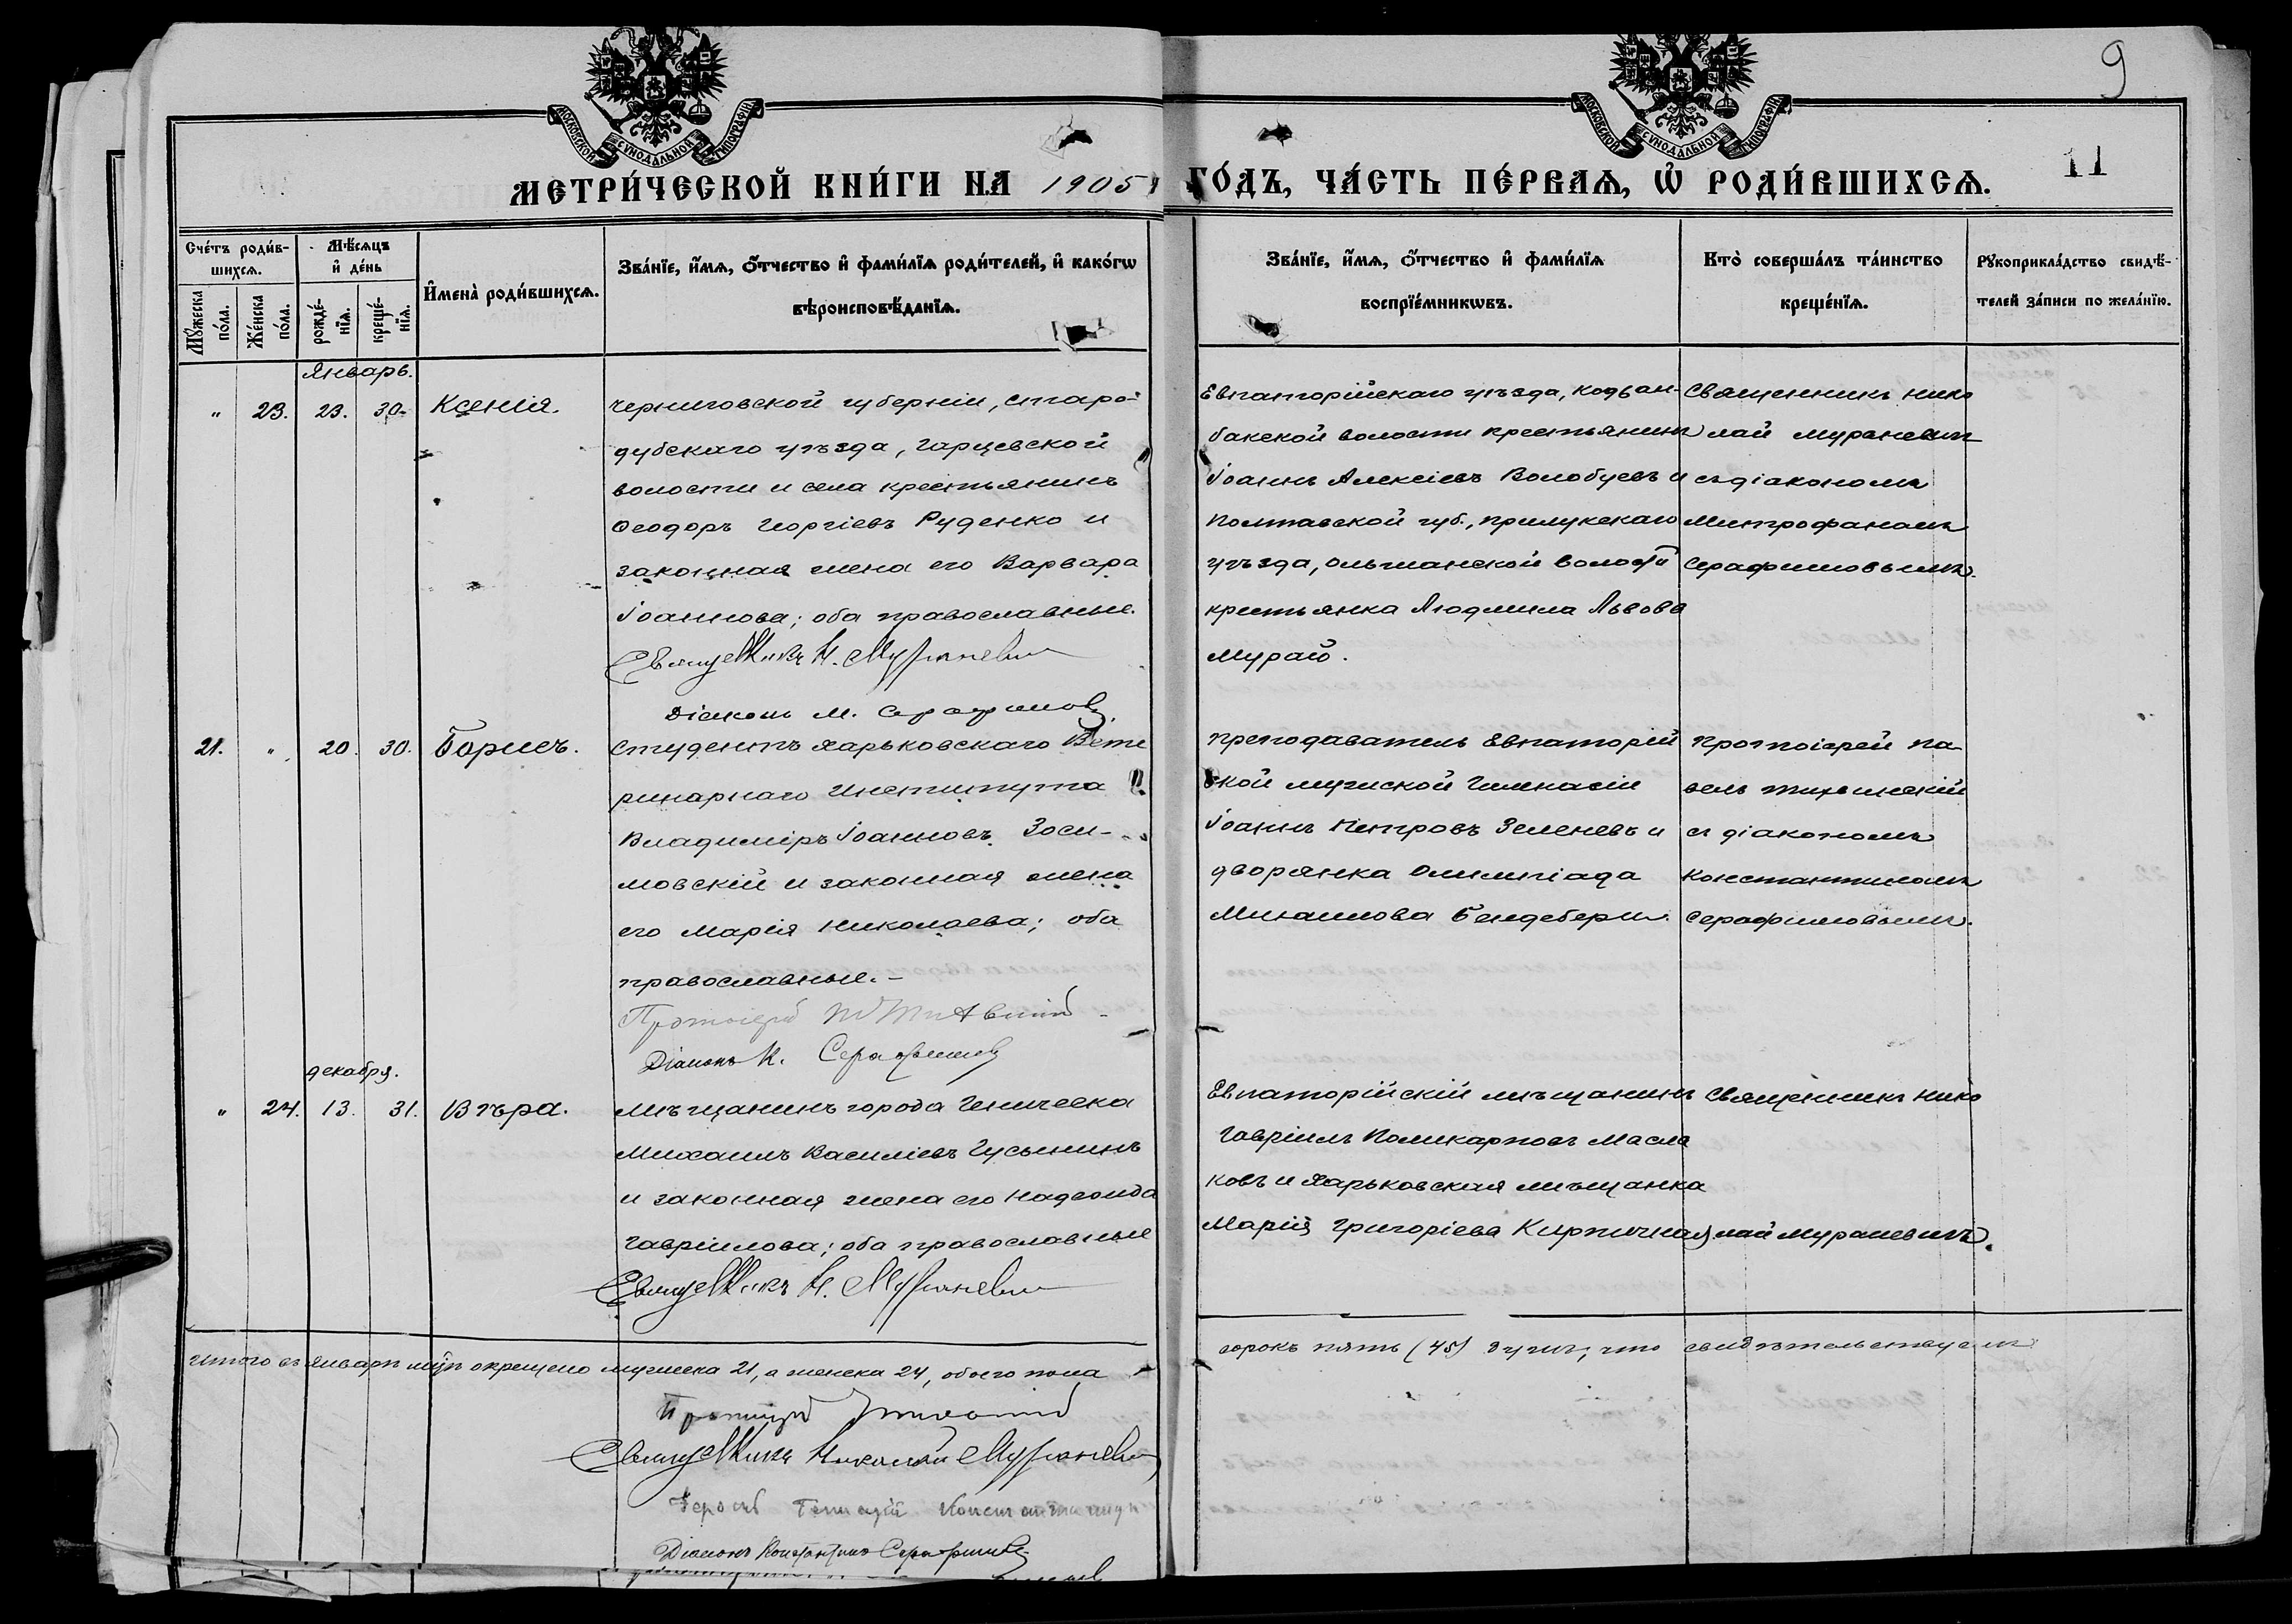 9
11
МОСКОВСКОЙ СѴНОДАЛЬНОЙ ТИПОГРАФІИ
МОСКОВСКОЙ СѴНОДАЛЬНОЙ ТИПОГРАФІИ
МЕТРИ́ЧЕСКОЙ КНИ́ГИ НА 1905 ГО́ДЪ, ЧА́СТЬ ПЕ́РВАѦ, Ѡ҆ РОДИ́ВШИХСѦ.
Сче́тъ роди́в-
шихсѧ.
Мꙋ́жеска по́ла.
Же́нска по́ла.
Мѣ́сѧцъ
и҆ де́нь
рожде́-
нїѧ.
креще́-
нїѧ.
И҆мена̀ роди́вшихсѧ.
Зва́нїе, и҆́мѧ, ѻ҆́тчество и҆ фами́лїѧ роди́телей, и҆ како́гѡ
вѣроисповѣ́данїѧ.
Зва́нїе, и҆́мѧ, ѻ҆́тчество и҆ фами́лїѧ
воспрїе́мникѡвъ.
Кто̀ соверша́лъ та́инство
креще́нїѧ.
Рꙋкоприкла́дство свидѣ́-
телей за́писи по жела́нїю.
Январь.
" 23. 23. 30. Ксенія.
Черниговской губерніи, Старо-
дубскаго уѣзда, Гарцевской
волости и села крестьянинъ
Ѳеодоръ Георгіевъ Руденко и
законная жена его Варвара
Іоаннова; оба православные.
Священникъ Н. Мураневич
Діаконъ М. Серафимовъ
Евпаторійскаго уѣзда, Кодъан-
бакской волости крестьянинъ
Іоаннъ Алексіевъ Волобуевъ и
Полтавской губ., Прилукскаго
уѣзда, Ольшанской волости
крестьянка Людмила Львова
Мурай.
Священникъ Нико
лай Мураневич
съ діакономъ
Митрофаномъ
Серафимовымъ.
21. " 20. 30. Борисъ.
Студентъ Харьковскаго Вете
ринарнаго Института
Владиміръ Іоанновъ Зоси-
мовскій и законная жена
его Марія Николаева; оба
православные.-
Протоіерей
Діаконъ К. Серафимовъ
Преподаватель Евпаторій
ской мужской Гимназіи
Іоаннъ Петровъ Зеленевъ и
дворянка Олимпіада
Михаилова Бендебери.
Протоіерей Па-
велъ Тихвинскій
съ діакономъ
Константиномъ
Серафимовымъ.
декабря.
" 24. 13. 31. Вѣра.
Мѣщанинъ города Геническа
Михаилъ Василіевъ Гусынинъ
и законная жена его Надежда
Гавріилова; оба православные
Священникъ Н. Мураневич
Евпаторійскій мѣщанинъ
Гавріилъ Поликарповъ Масла
ковъ и Харьковская мѣщанка
Марія Григоріева Кирпичная
Священникъ Нико
лай Мураневичъ.
Итого въ январѣ мцѣ окрещено мужеска 21, а женска 24, обоего пола
сорокъ пять (45) душъ, что свидѣтельствуемъ
Протоіерей
Священникъ Николай Мураневич
Діаконъ Константинъ Серафимовъ